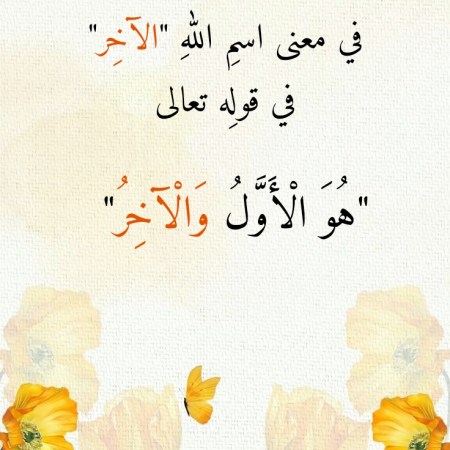 في معنى اسمِ اللهِ "الآخِر"
في قولِه تعالى
"هُوَ الْأَوَّلُ وَالْآخِرُ"